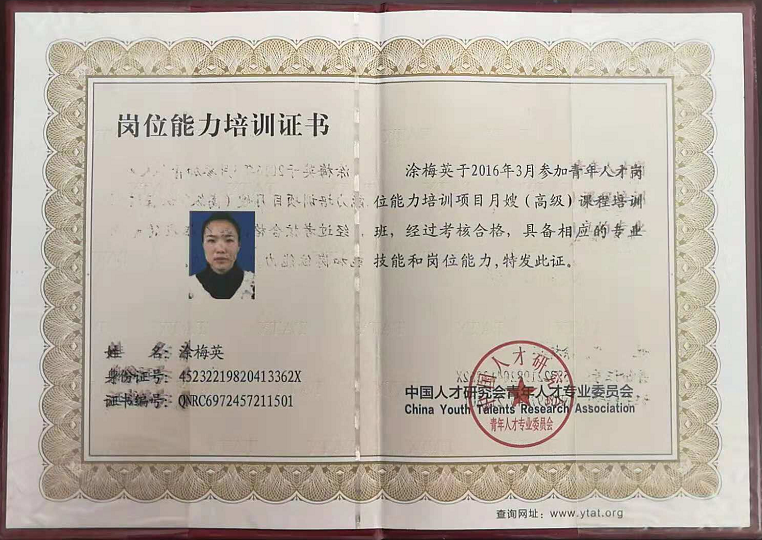 岗位能力培训证书
姓 名：涂梅英
身份证号：45232219820413362X
证书编号：QNRC6972457211501
涂梅英于2016年3月参加青年人才岗
位能力培训项目月嫂（高级）课程培训
班，经过考核合格，具备相应的专业
技能和岗位能力,特发此证。
中国人才研究会青年人才专业委员会
China Youth Talents Research Association
中国人才研究会
青年人才专业委员会
查询网址：www.ytat.org